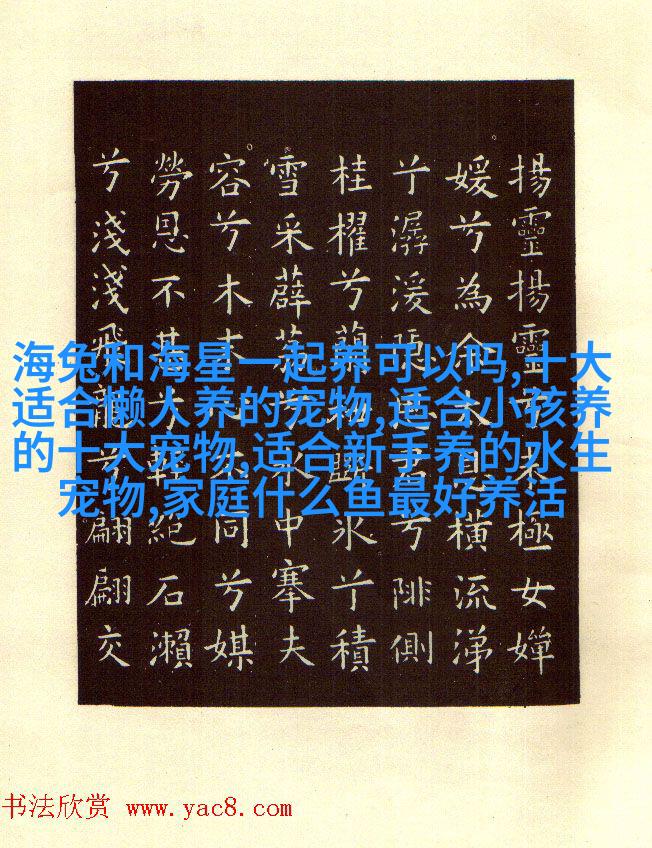 揚靈揚靈兮未極女嬋
媛兮為余太息橫流涕
兮潺湲隱思君兮陫側
桂櫂兮蘭枻斲冰兮積
雪采薜荔兮水中搴夫
容兮木末心不同兮媒
勞恩不甚兮輕絕石瀨
兮淺淺飛龍兮翩翩交
海兔和海星一起养可以吗,十大
适合懒人养的宠物,适合小孩养
的十大宠物,适合新手养的水生
宠物,家庭什么鱼最好养活
书法欣赏 www.yac8.com